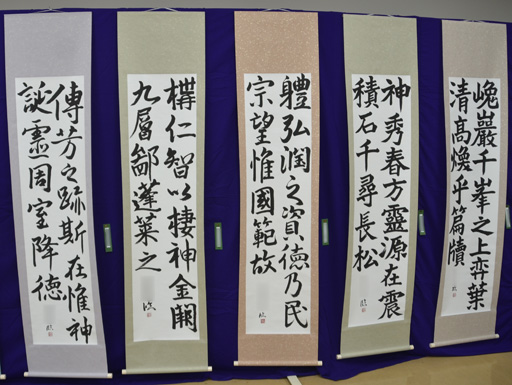 巉巖千峯之上弈葉
清高煥乎篇牘
神秀春方靈源在震
積石千尋長松
軆弘潤之資德乃民
宗望惟國範故
構仁智以棲神金闕
九層鄙蓬萊之
傳芳之跡斯在惟神
誕靈周室降德